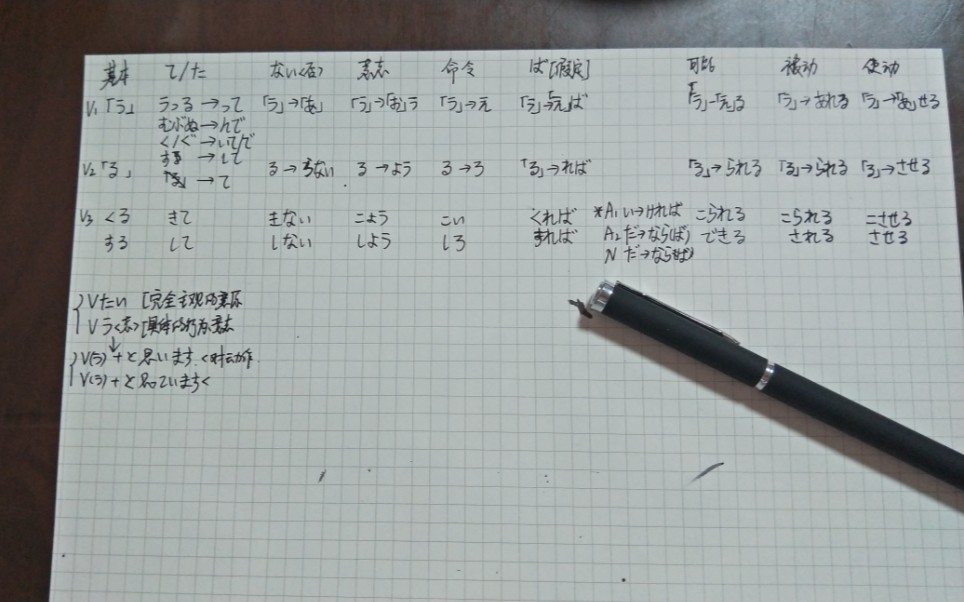 基本 て/た ない<否> 意志 命令 ば[假定] 可能 被动 使动
V₁「う」 うつる→って 「う」→「あ」 「う」→「お」う 「う」→え 「う」→「え」ば 「う」→「え」る 「う」→あれる 「う」→「あ」せる
むぶぬ→んで
く/ぐ→いて/で
す→して
V₂「る」 「る」→て る→ない る→よう る→ろ 「る」→れば 「る」→られる 「る」→られる 「る」→させる
V₃ くる きて きない こよう こい くれば *A₁い→ければ こられる こられる こさせる
する して しない しよう しろ すれば A₂だ→なら(ば) できる される させる
N だ→なら(ば)
Vたい [完全主观的意愿
Vう<志>[具体的行为意志
V(う)+と思います.<时动作.
V(う)+と思っています<